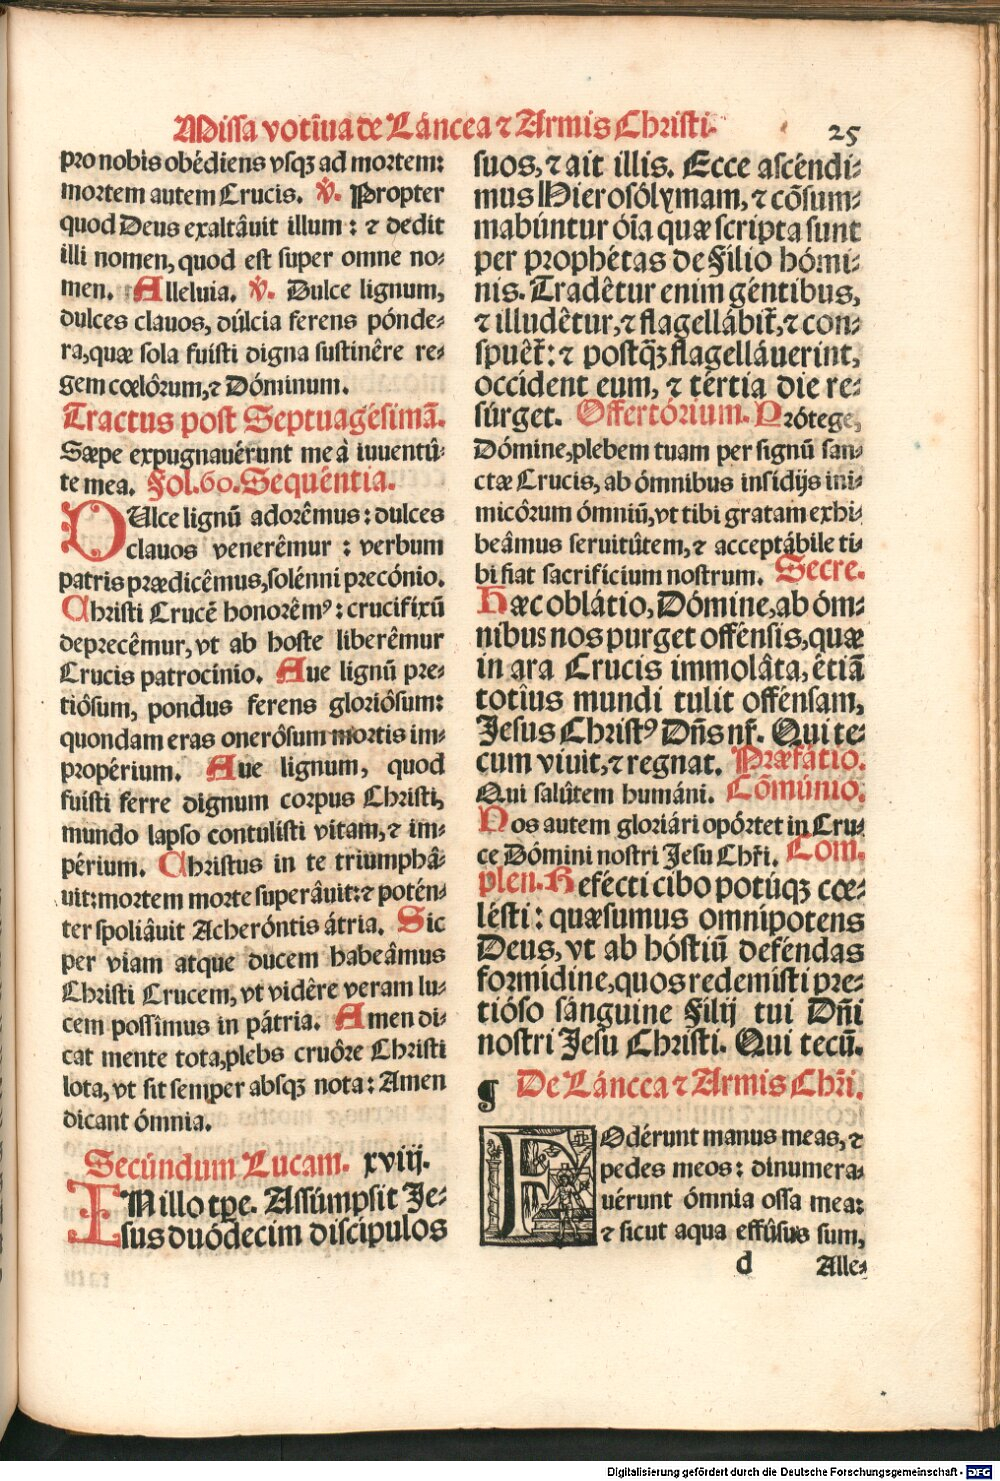 Missa votiua de Láncea ⁊ Armis Christi.
25
pro nobis obédiens vsqꝫ ad mortem:
mortem autem Crucis. ℣. Propter
quod Deus exaltâuit illum: ⁊ dedit
illi nomen, quod est super omne no-
men. Alleluia. ℣. Dulce lignum,
dulces clauos, dúlcia ferens pónde-
ra, quæ sola fuisti digna sustinêre re-
gem cœlôrum, ⁊ Dóminum.
Tractus post Septuagésimã.
Sæpe expugnauérunt me à iuuentû-
te mea. Fol. 60. Sequéntia.
DUlce lignũ adorêmus: dulces
clauos venerêmur: verbum
patris prædicêmus, solénni precónio.
Christi Crucẽ honorêmꝰ: crucifixũ
deprecêmur, vt ab hoste liberêmur
Crucis patrocinio. Aue lignũ pre-
tiôsum, pondus ferens gloriôsum:
quondam eras onerôsum mortis im-
propérium. Aue lignum, quod
fuisti ferre dignum corpus Christi,
mundo lapso contulisti vitam, ⁊ im-
périum. Christus in te triumphâ-
uit: mortem morte superâuit: ⁊ potén-
ter spoliâuit Acheróntis átria. Sic
per viam atque ducem habeâmus
Christi Crucem, vt vidêre veram lu-
cem possimus in pátria. Amen di-
cat mente tota, plebs cruôre Christi
lota, vt sit semper absqꝫ nota: Amen
dicant ómnia.
Secúndum Lucam. xviij.
IN illo tp̄e. Assúmpsit Je-
sus duódecim discipulos
suos, ⁊ ait illis. Ecce ascéndi-
mus Hierosólymam, ⁊ cõsum-
mabúntur óĩa quæ scripta sunt
per prophétas de Filio hómi-
nis. Tradêtur enim géntibus,
⁊ illudêtur, ⁊ flagellábit̃, ⁊ con-
spuêt̃: ⁊ postq̃ꝫ flagelláuerint,
occident eum, ⁊ tértia die re-
súrget. Offertórium. Prótege,
Dómine, plebem tuam per signũ san-
ctæ Crucis, ab ómnibus insidijs ini-
micôrum ómniũ, vt tibi gratam exhi-
beâmus seruitûtem, ⁊ acceptábile ti-
bi fiat sacrificium nostrum. Secre.
Hæc oblátio, Dómine, ab óm-
nibus nos purget offénsis, quæ
in ara Crucis immolâta, étiã
totîus mundi tulit offénsam,
Jesus Christꝰ Dñs nr̃. Qui te-
cum viuit, ⁊ regnat. Præfátio.
Qui salûtem humáni. Cõmúnio.
Nos autem gloriári opórtet in Cru-
ce Dómini nostri Jesu Chr̃i. Com-
plen. Refécti cibo potúqꝫ cœ-
lésti: quæsumus omnipotens
Deus, vt ab hóstiũ deféndas
formidine, quos redemisti pre-
tióso sánguine Filij tui Dñi
nostri Jesu Christi. Qui tecũ.
¶ De Láncea ⁊ Armis Chr̃i.
FOdérunt manus meas, ⁊
pedes meos: dinumera-
uérunt ómnia ossa mea:
⁊ sicut aqua effûsus sum,
d Alle-
Digitalisierung gefördert durch die Deutsche Forschungsgemeinschaft - DFG